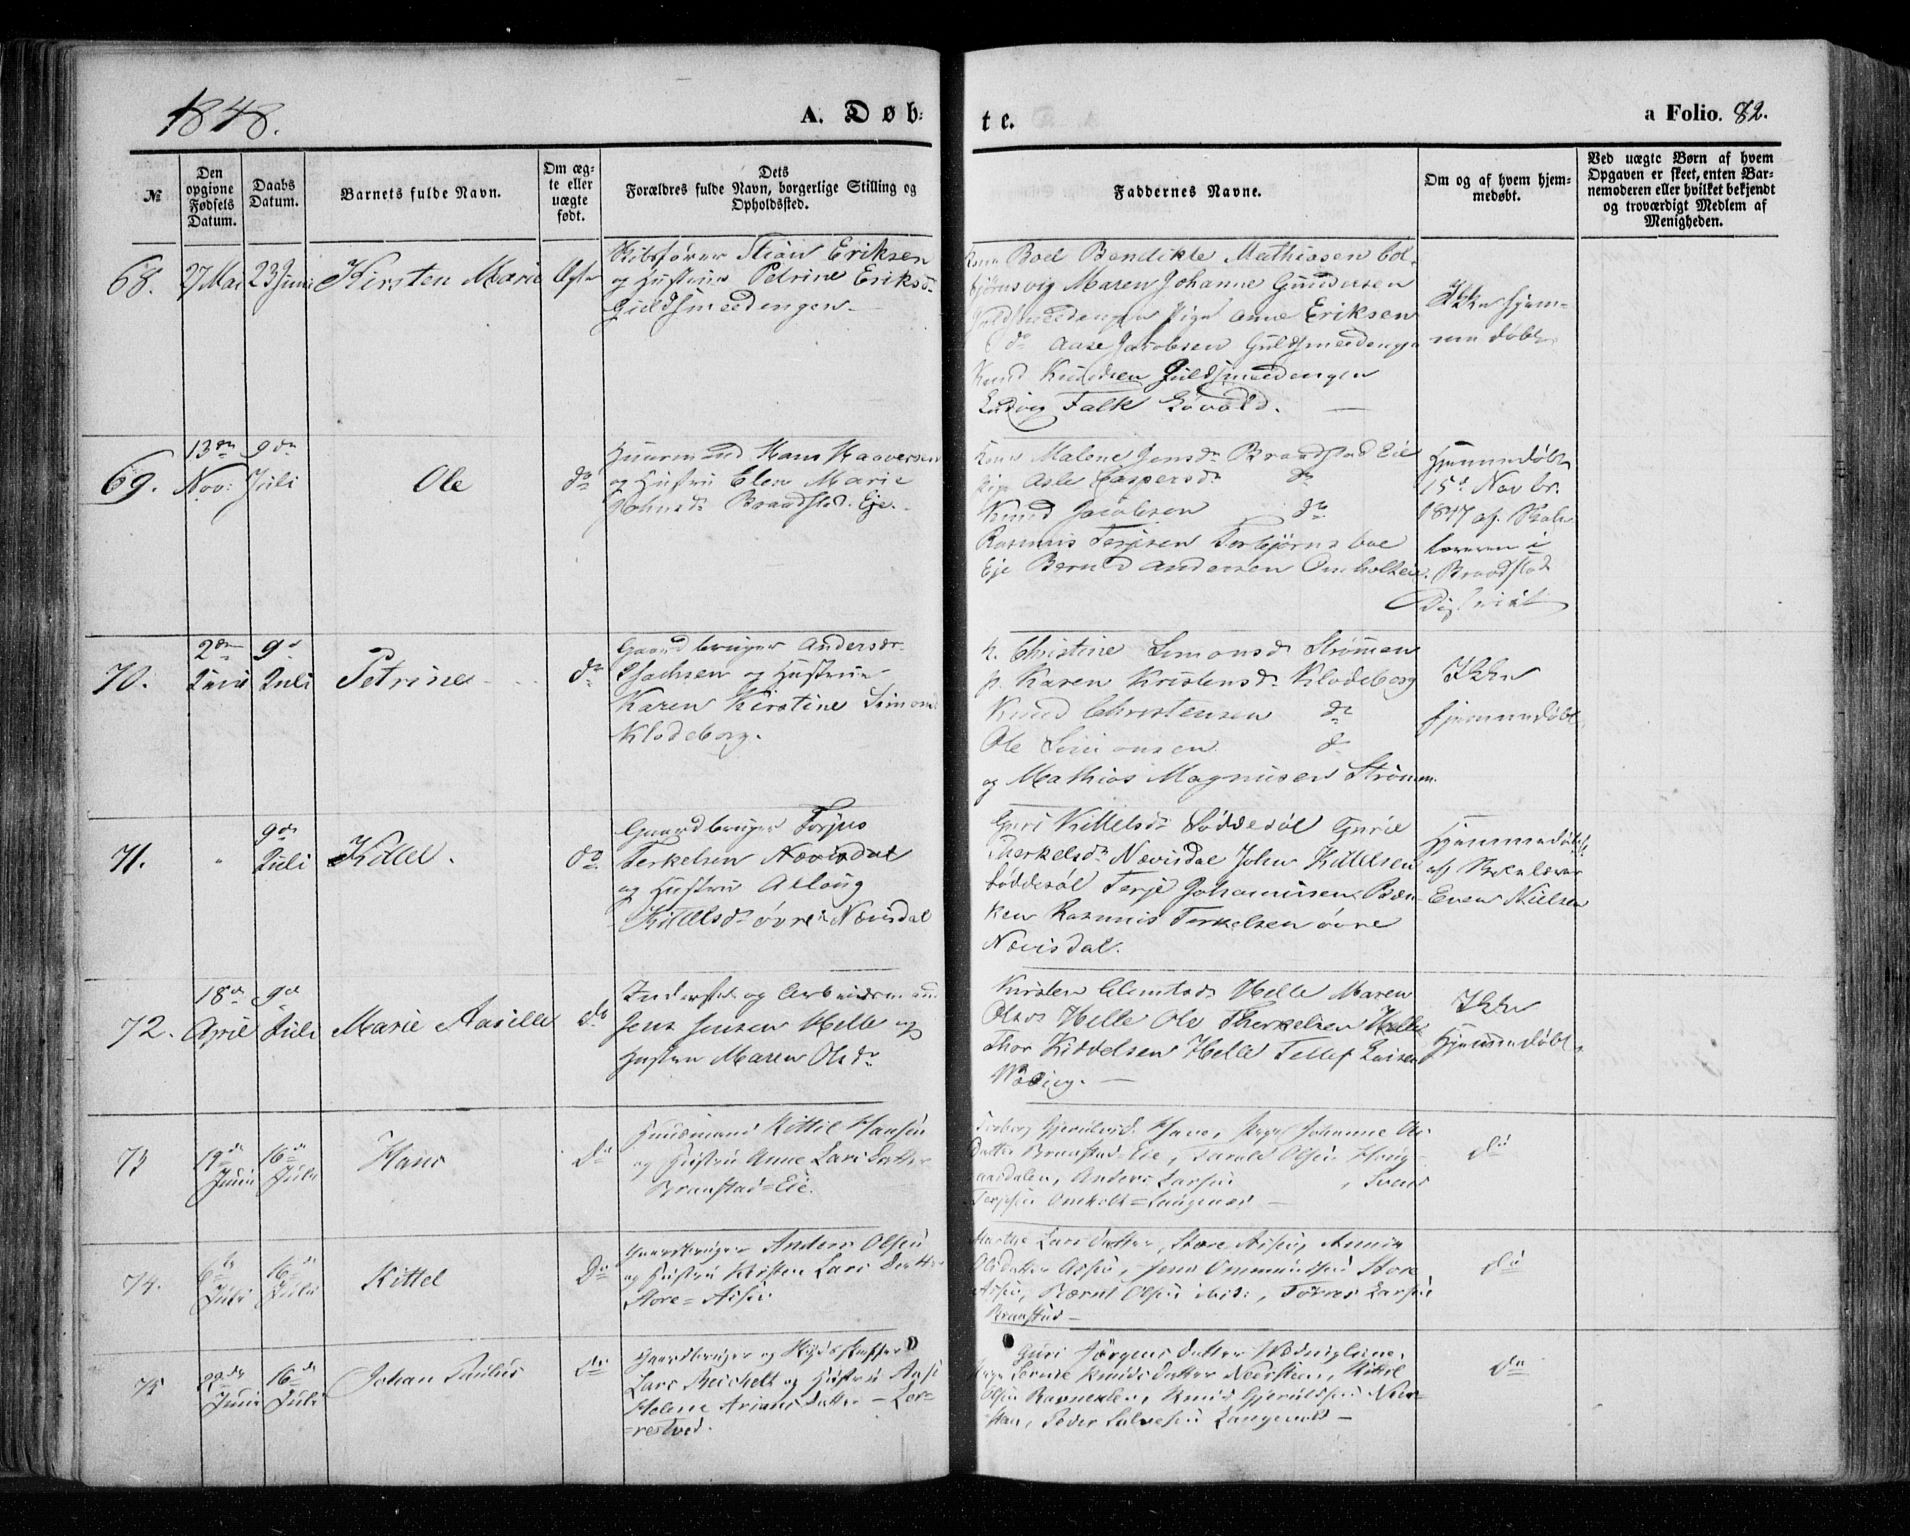 1848.
A. Døb:
te.
a Folio. 82.
№
Den opgivne Fødsels Datum.
Daabs Datum.
Barnets fulde Navn.
Om ægte eller uægte født.
Dets Forældres fulde Navn, borgerlige Stilling og Opholdssted.
Faddernes Navne.
Om og af hvem hjemmedøbt.
Ved uægte Børn af hvem Opgaven er skeet, enten Barnemoderen eller hvilket bekjendt og troværdigt Medlem af Menigheden.
68.
27 Mai
23 Juni
Kirsten Marie
Ægte
Skibsfører Stian Eriksen
og Hustrue Petrine Eriksd.
Guldsmeedengen.
Boel Bendikte Mathiasen Col-
bjørnsvig Maren Johanne Gundersen
Guldsmeedengen Pige Anne Eriksen
do Aase Jacobsen Guldsmeedengen
Knud Knudsen Guldsmeedengen
Ludvig Falk Løvold.
Ikke hjem-
me døbt
69.
13de
Nov:
9de
Juli
Ole
do
Huusmand Hans Haaversen
og Hustru Elen Marie
Johnsd. Braadstad Eje.
Kone Malene Jensdr Braadstad Eie
Pige Asle Caspersdr do
Knud Jacobsen do
Rasmus Terjesen Torbjørnsboe
Eje Bernd Andersen Omholtseie.
Hjemmedøbt
15de Novbr.
1847 af Skole
læreren i
Braadstad
District
70.
2den
Juni
9de
Juli
Petrine
do
Gaardbruger Anders
Isachsen og Hustrue
Karen Kirstine Simonsd.
Klodeborg.
k. Christine Simonsd. Strømmen
p. Karen Kristensd. Klodeborg
Knud Christensen do
Ole Simonsen do
og Mathias Magnusen Strømm.
Ikke
hjemmedøbt
71.
"
9de
Juli
Kittel.
do
Gaardbruger Torjus
Terkelsen Nævisdal
og Hustru Aslaug
Kittelsdr øvre Nævisdal
Guri Kittelsdr Løddesøl Gurie
Therkelsdr Nævisdal John Kittelsen
Løddesøl Terje Johannisen Bæk-
ken Rasmus Terkelsen øvre
Nævisdal.
Hjemmedøbt
af Skolelærer
Even Nielsen
72.
18de
April
9de
Juli
Marie Aasille
do
Inderst og Arbeidsmand
Jens Jensen Helle og
Hustru Maren Olsdr
Kirsten Clemtsdr Helle Maren
Olsdr Helle Ole Therkelsen Helle
Thor Kiddelsen Helle Tellef Larsen
Ikke
Hjemmedøbt
73
19de
Juni
16de
Juli
Hans
Do
Huusmand Kittil Hansen
og Hustru Anne Lars Datter
Branstad=Eie.
Johanne Ols
Datter Branstad=Eie, Tarald Olsen Houg-
aasdalen, Anders Larsen, Svend
Terjesen Omholt=Langenæs
do
74.
6te
Juli
16de
Juli
Kittel
Do
Gaardbruger Anders Olsen
og Hustru Kirsten Lars Datter
Store=Assev
Marthe Lars Datter, Store Assev, Annie
Ols Datter Assev, Jens Ommundsen Store
Assev, Bærnt Olsen ibid., Tobias Larsen
Branstad
do
75
Juni
16de
Juli
Johan Paulus
Do
Gaardbruger og Skydsskaffer
Lars Reichelt og Hustru
Helene Arians Datter - Lør-
=restved.
Guri Jørgens Datter
Knuds Datter Neersteen, Kittel
Olsen Ravneklev, Knud Gjeruldsen Neer-
steen, Peder Salvesen Langevold
do